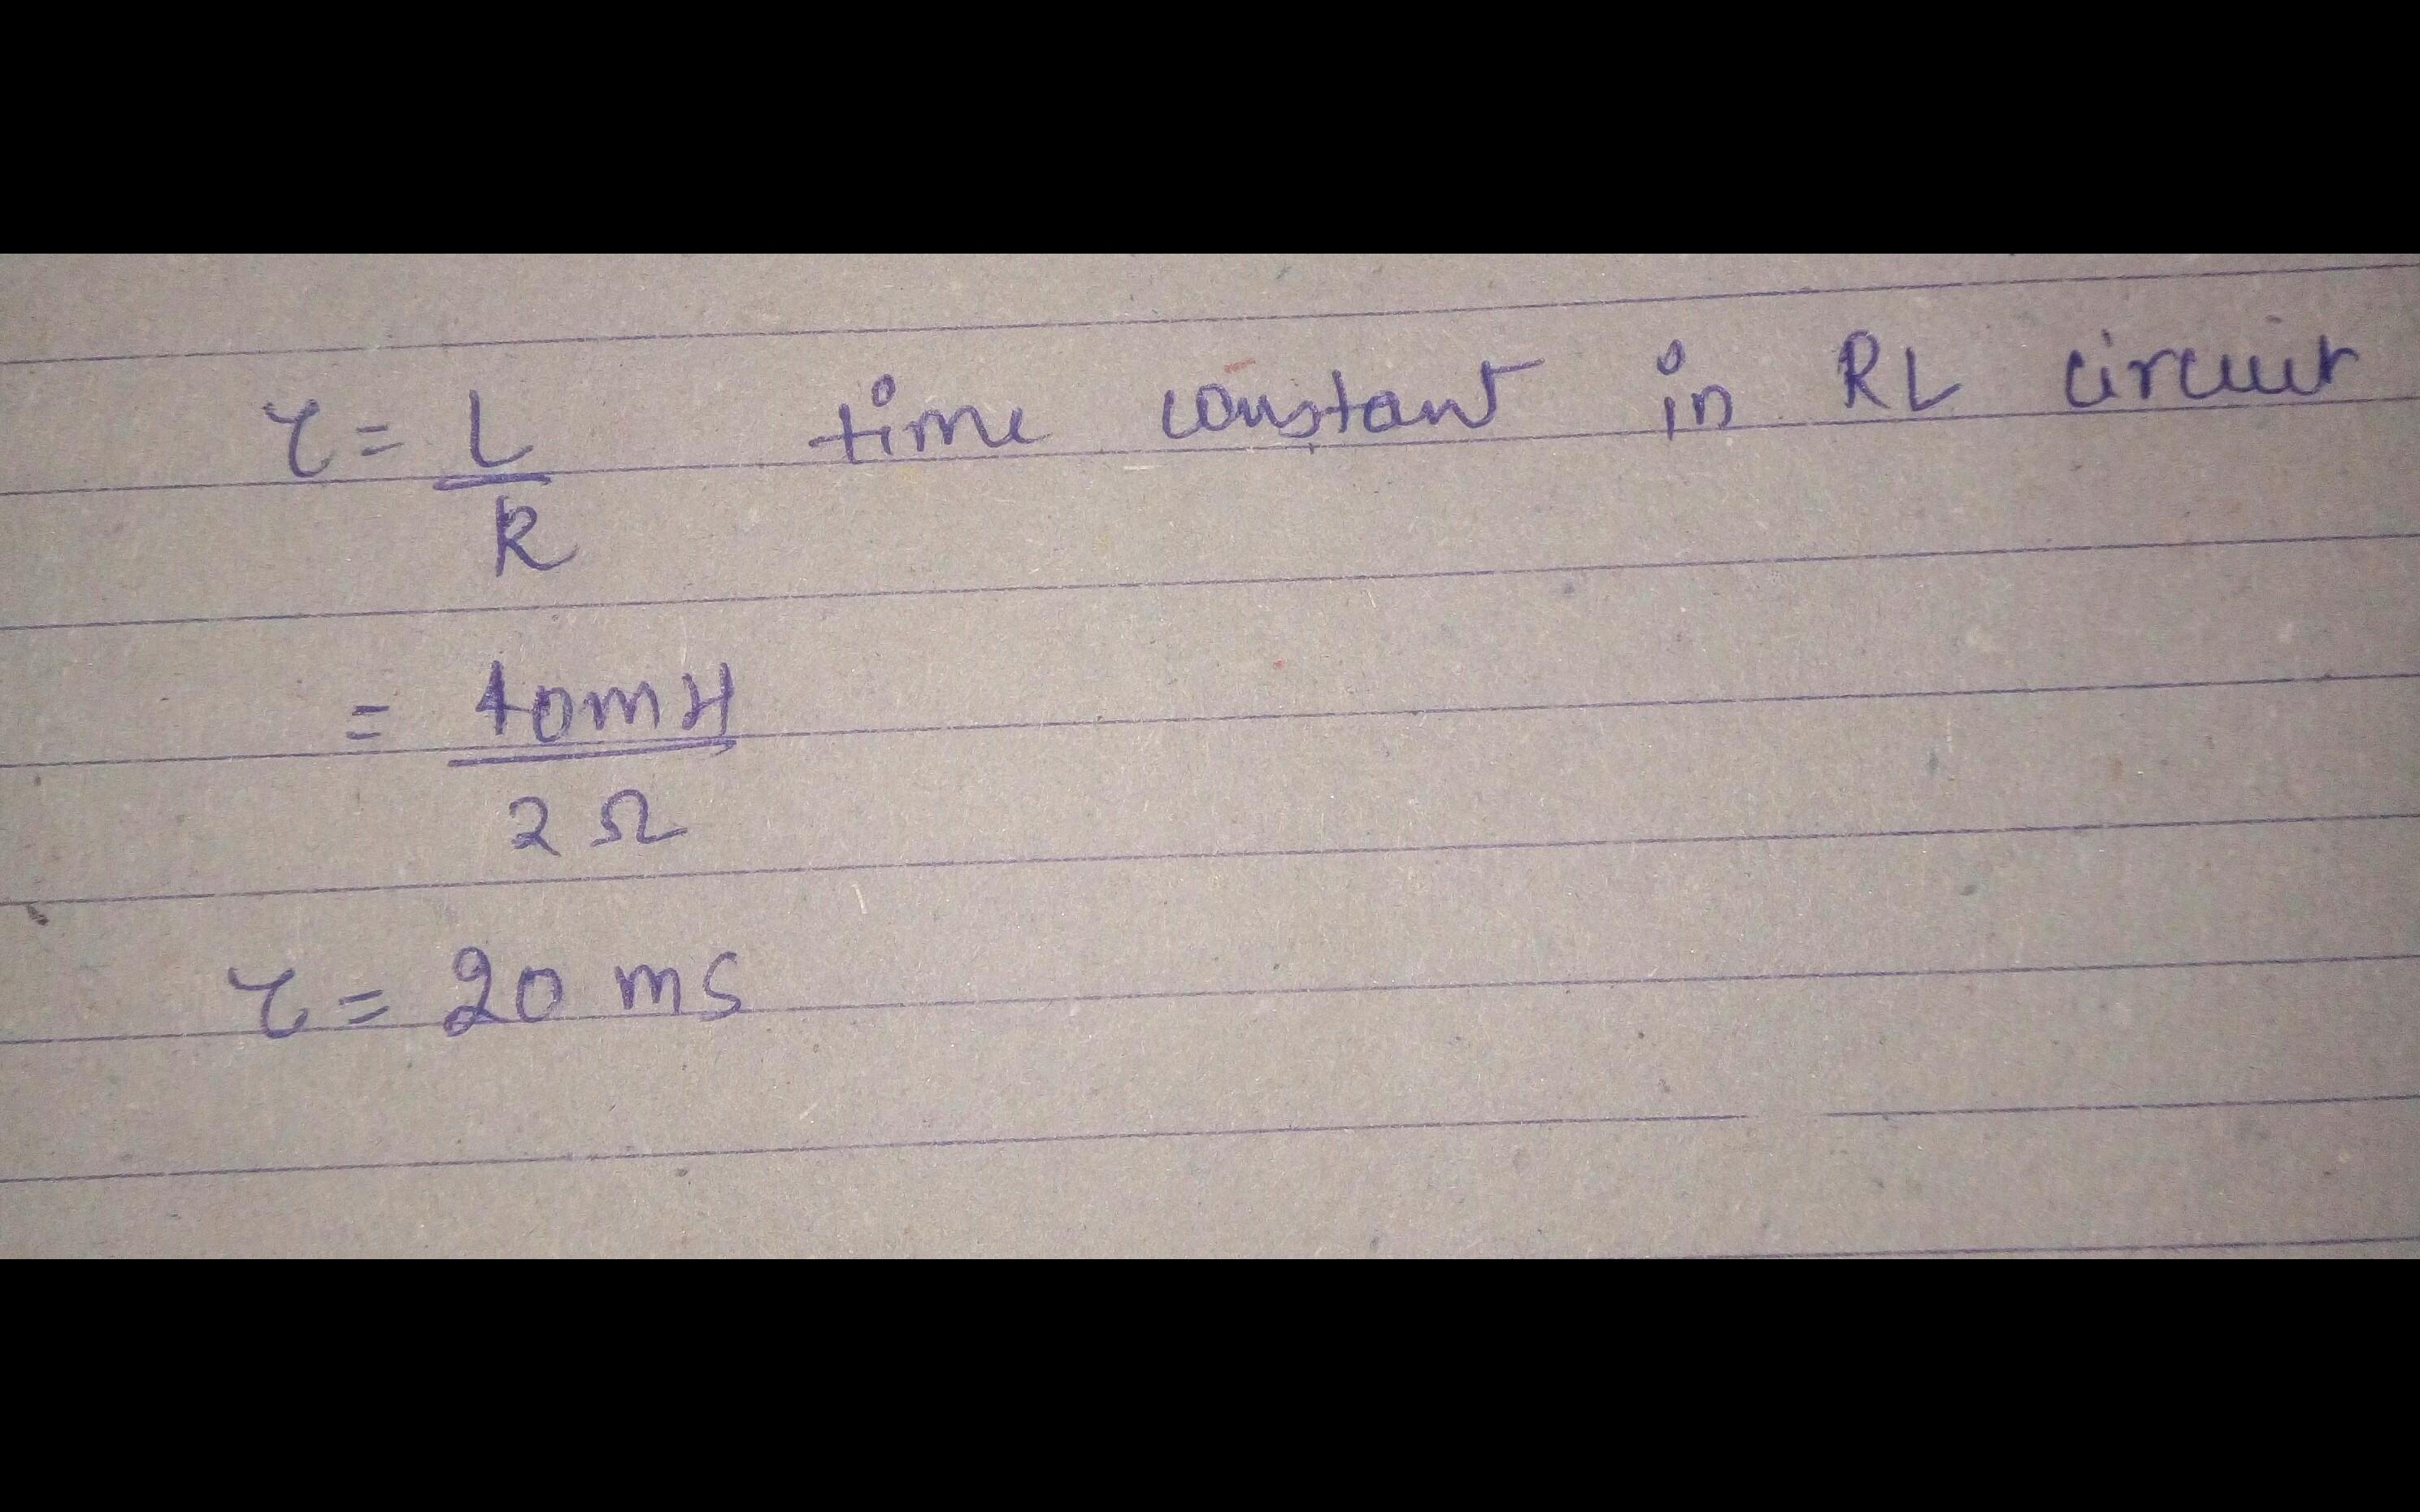 τ = L/R time constant in RL circuit
= 40mH/2Ω
τ = 20 ms